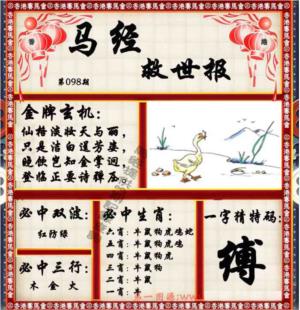 香 港
马经
救世报
第098期
金牌玄机:
仙格淡妆天与丽,
只是洁白道芳姿,
晚饮岂知金掌迥,
登临正要诗弹压
必中双波:
红防绿
必中三行:
木金火
必中生肖:
六肖:牛鼠狗虎鸡蛇
五肖:牛鼠狗虎鸡
四肖:牛鼠狗虎
三肖:牛鼠狗
二肖:牛鼠
一肖:牛
一字猜特码:
缚